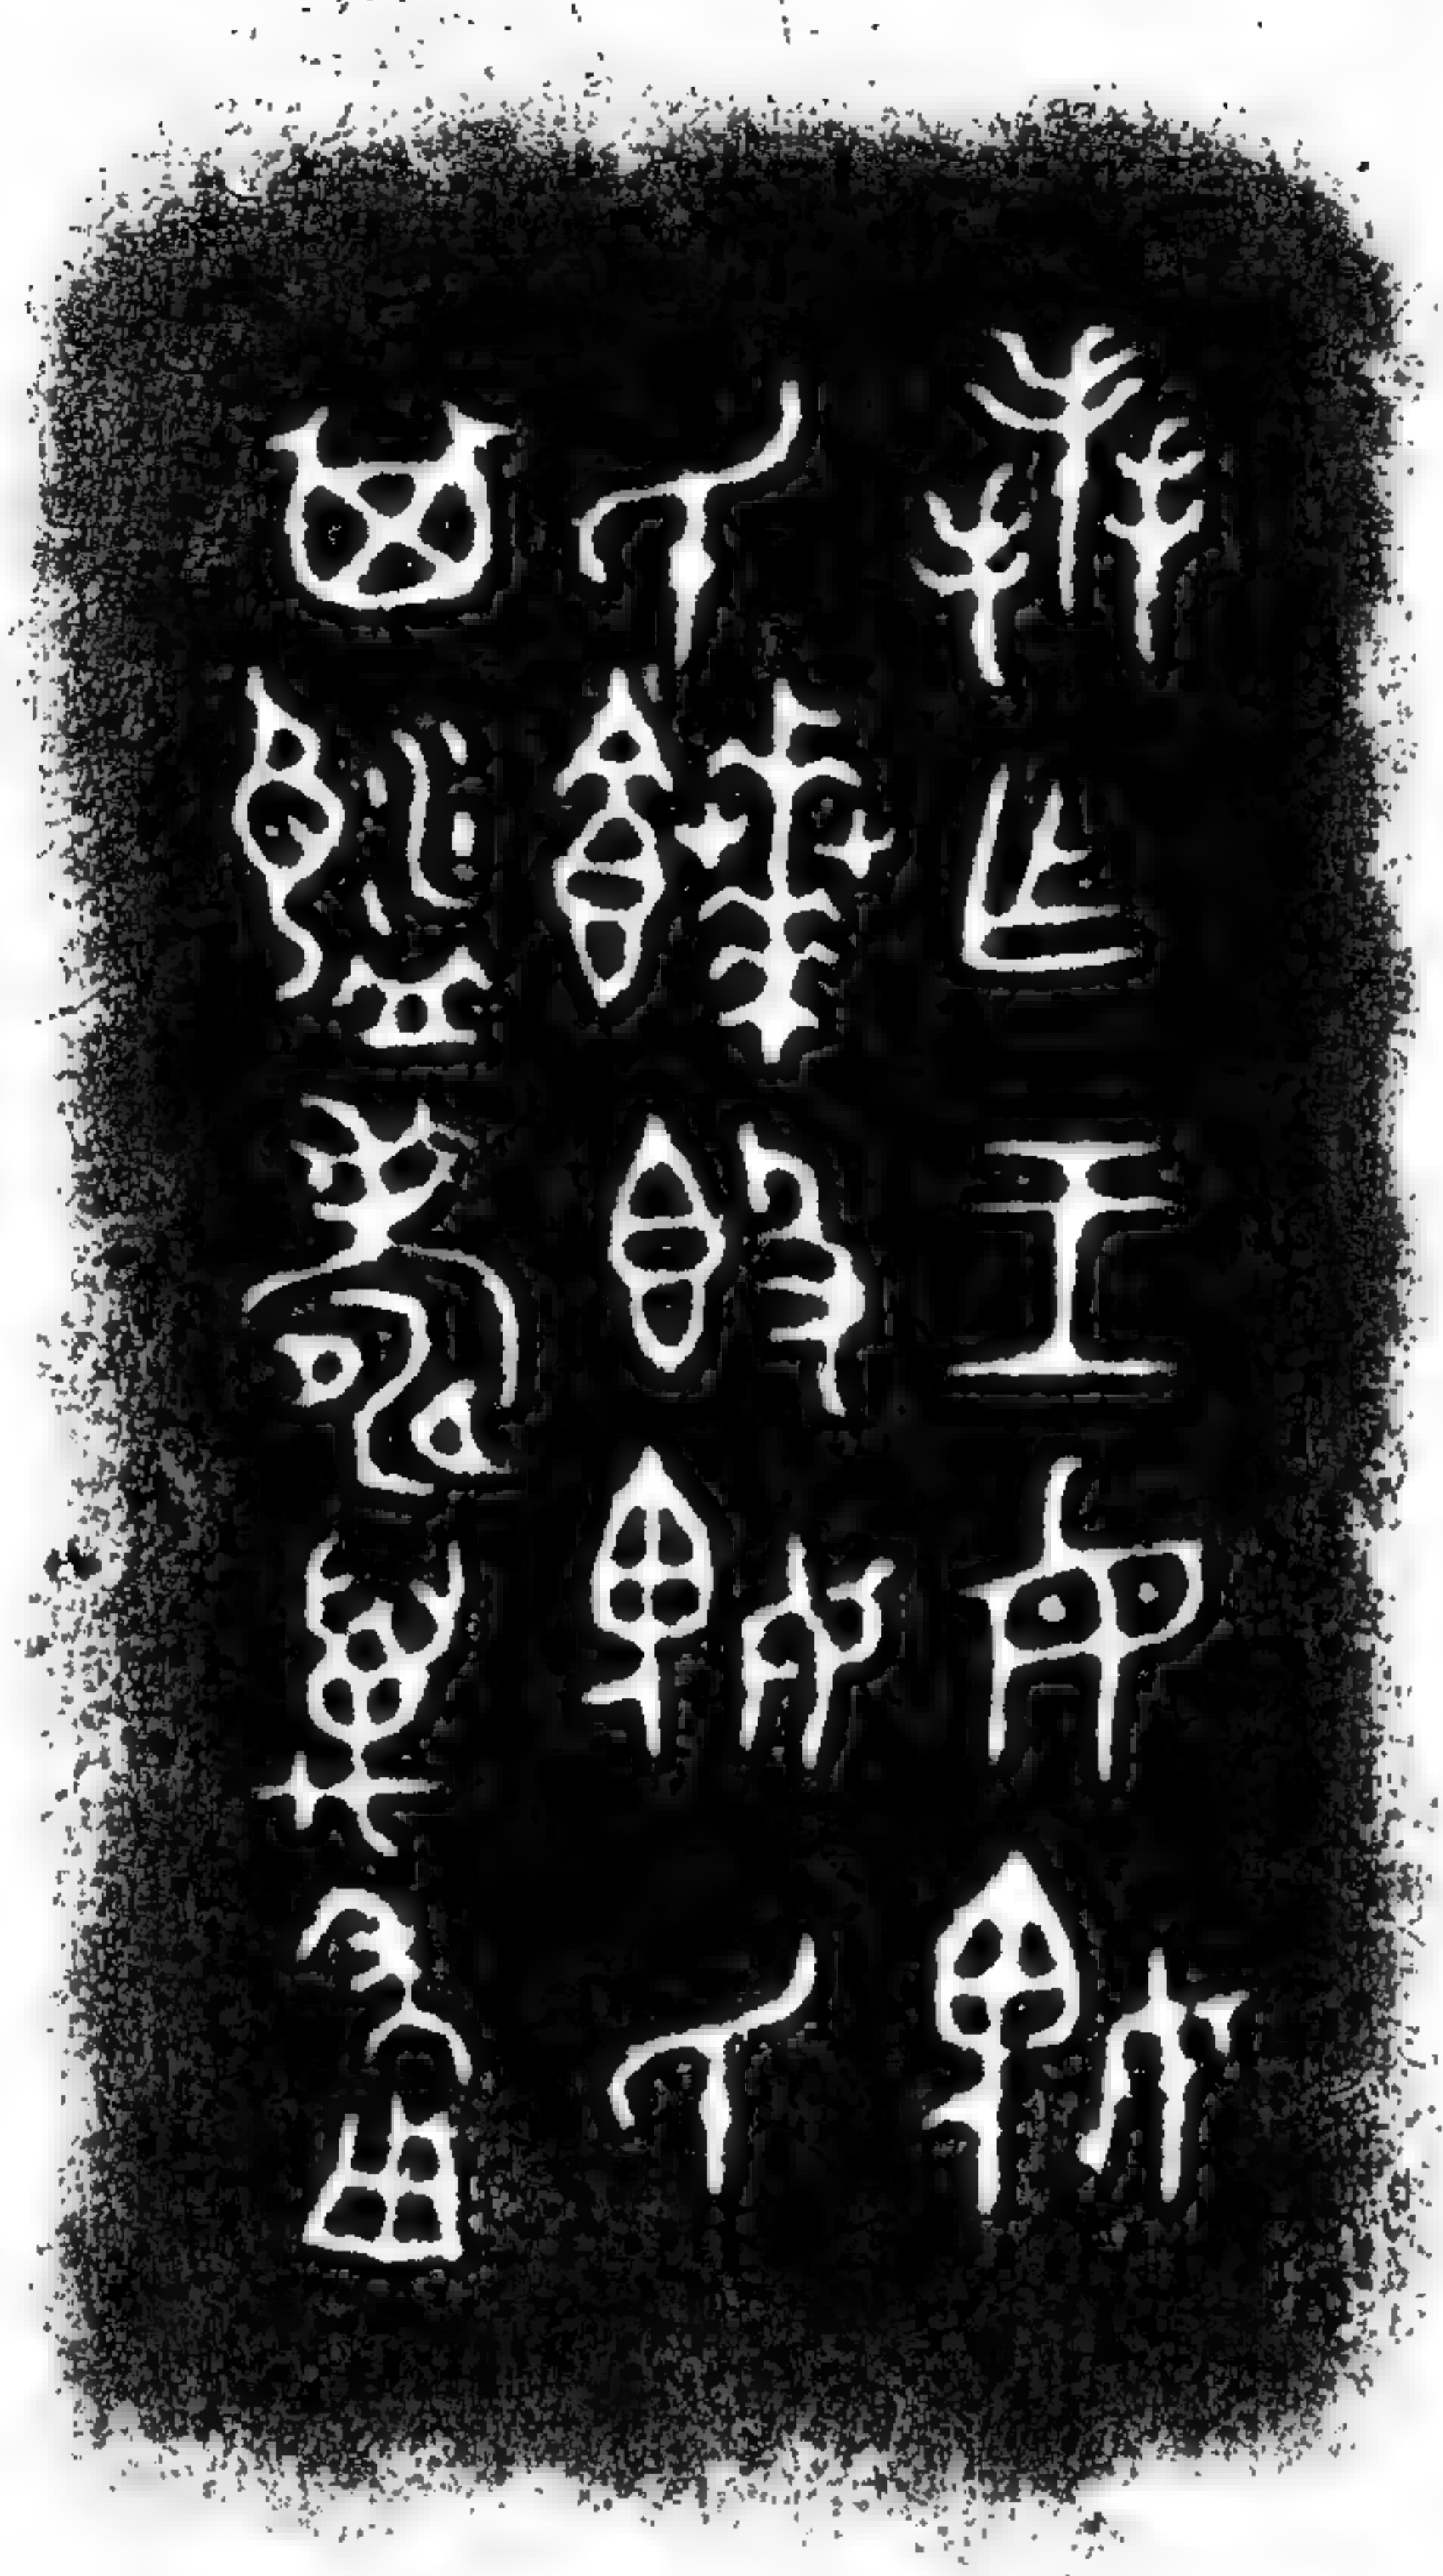 毳乍王母媿
氏饙簋媿氏
其眉壽萬年用